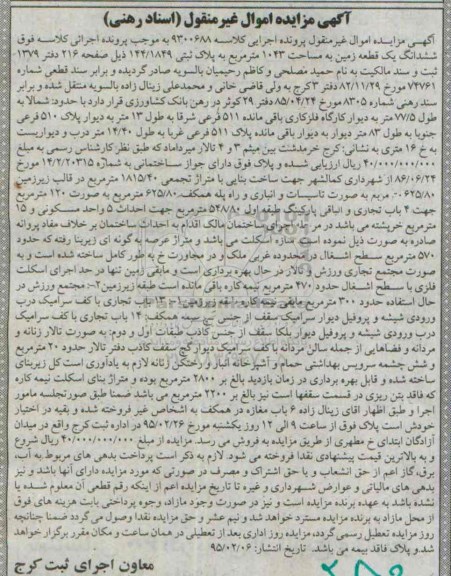 آگهی مزایده اموال غیر منقول (اسناد رهنی)
آگهی مزایده اموال غیرمنقول پرونده اجرایی کلاسه ۹۳۰۰۶۸۸ به موجب پرونده اجرائی کلاسه فوق
ششدانگ یک قطعه زمین به مساحت ۱۰۴۳ مترمربع به پلاک ثبتی ۱۴۴/۱۸۴۹ ذیل صفحه ۲۱۶ دفتر ۱۳۷۹-
ثبت و سند مالکیت به نام حمید مصلحی و کاظم رحیمیان بالسویه صادر گردیده و برابر سند قطعی شماره
۷۴۷۶۱ مورخ ۸۲/۱۱/۲۹ دفتر ۳ کرج به ولی قاضی خانی و محمدعلی زینال زاده بالسویه منتقل شده و برابر
سند رهنی شماره ۸۳۰۵ مورخ ۸۵/۰۴/۲۴ دفتر ۲۹ کوثر در رهن بانک کشاورزی قرار دارد با حدود: شمالا به
طول ۷۷/۵ متر به دیوار کارگاه فلزکاری باقی مانده ۵۱۱ فرعی شرقا به طول ۱۳ متر به دیوار پلاک ۵۱۰ فرعی
جنوبا به طول ۸۳ متر دیوار به دیوار باقی مانده پلاک ۵۱۱ فرعی غربا به طول ۱۴/۴۰ متر درب و دیواریست
به خ ۱۶ متری به نشانی: کرج خرمدشت بین میثم ۳ و ۴ تالار میرداماد که طبق نظر کارشناس رسمی به مبلغ
۴۰/۰۰۰/۰۰۰/۰۰۰ ریال ارزیابی شده و پلاک فوق دارای جواز ساختمانی به شماره ۱۴/۲/۲۰۳۱۵ مورخ
۸۶/۰۶/۲۴ از شهرداری کمالشهر جهت ساخت بنایی با متراژ تجمعی ۱۸۱۵/۴۰ مترمربع در قالب زیرزمین
۶۲۵/۸۰ مترمربع به صورت تاسیسات و انباری و راه پله همکف ۶۲۵/۸۰ مترمربع به صورت ۱۲۰ مترمربع
جهت ۴ باب تجاری و الباقی پارکینگ طبقه اول ۵۴۸/۸۰ مترمربع جهت احداث ۵ واحد مسکونی و ۱۵
مترمربع خرپشته می باشد در مرحله اجرای ساختمان مالک اقدام به احداث ساختمان بر خلاف مفاد پروانه
صادره به صورت ذیل نموده است سازه اسکلت می باشد و متراژ عرصه به گونه ای زیربنا رفته که حدود
۵۷۰ مترمربع سطح اشغال در محدوده غربی ملک و در مجاورت خ به طور کامل ساخته شده است و به
صورت مجتمع تجاری ورزش و تالار در حال بهره برداری است و مابقی زمین تنها در حد اجرای اسکلت
فلزی با سطح اشغال حدود ۴۷۰ مترمربع نیمه کاره باقی مانده است طبقه زیرزمین ۲-: مجتمع ورزش در
حال استفاده حدود ۳۰۰ مترمربع مابقی نیمه کاره طبقه زیرزمین ۱-: باب تجاری با کف سرامیک درب
ورودی شیشه و پروفیل دیوار سرامیک سقف از جنس گچ نیمه همکف: ۱۴ باب تجاری با کف سرامیک
درب ورودی شیشه و پروفیل دیوار بلکا سقف از جنس کاذب طبقات اول و دوم: به صورت تالار زنانه و
مردانه و فضاهایی از جمله سالن مردانه با کف سرامیک دیوار گچ سقف کاذب دفتر تالار حدود ۲۰ مترمربع
و شش چشمه سرویس بهداشتی حمام و آشپزخانه انبار و رختکن زنانه لازم به یادآوری است کل زیربنای
ساخته شده و قابل بهره برداری در زمان بازدید بالغ بر ۲۸۰۰ مترمربع بوده و متراژ بنای اسکلت نیمه کاره
که فاقد بتن ریزی در قسمت سقفها است نیز بالغ بر ۲۲۰۰ مترمربع می باشد ضمنا طبق صورتجلسه مامور
اجرا و طبق اظهار آقای زینال زاده ۶ باب مغازه در همکف به اشخاص غیر فروخته شده و بقیه در اختیار
خودش است پلاک فوق از ساعت ۹ الی ۱۲ روز یکشنبه مورخ ۹۵/۰۲/۲۶ در اداره ثبت کرج واقع در میدان
آزادگان ابتدای خ مطهری از طریق مزایده به فروش می رسد. مزایده از مبلغ ۴۰/۰۰۰/۰۰۰/۰۰۰ ریال شروع
و به بالاترین قیمت پیشنهادی نقدا فروخته می شود. لازم به ذکر است پرداخت بدهی های مربوط به آب،
برق، گاز اعم از حق انشعاب و یا حق اشتراک و مصرف در صورتی که مورد مزایده دارای آنها باشد و نیز
بدهی های مالیاتی و عوارض شهرداری و غیره تا تاریخ مزایده اعم از اینکه رقم قطعی آن معلوم شده یا
نشده باشد به عهده برنده مزایده است و نیز در صورت وجود مازاد، وجوه پرداختی بابت هزینه های فوق
از محل مازاد به برنده مزایده مسترد خواهد شد و نیم عشر و حق مزایده نقدا وصول می گردد ضمنا چنانچه
روز مزایده تعطیل رسمی گردد، مزایده روز اداری بعد از تعطیلی در همان ساعت و مکان مقرر برگزار خواهد
شد و پلاک فاقد بیمه می باشد. تاریخ انتشار: ۹۵/۰۲/۰۶
معاون اجرای ثبت کرج